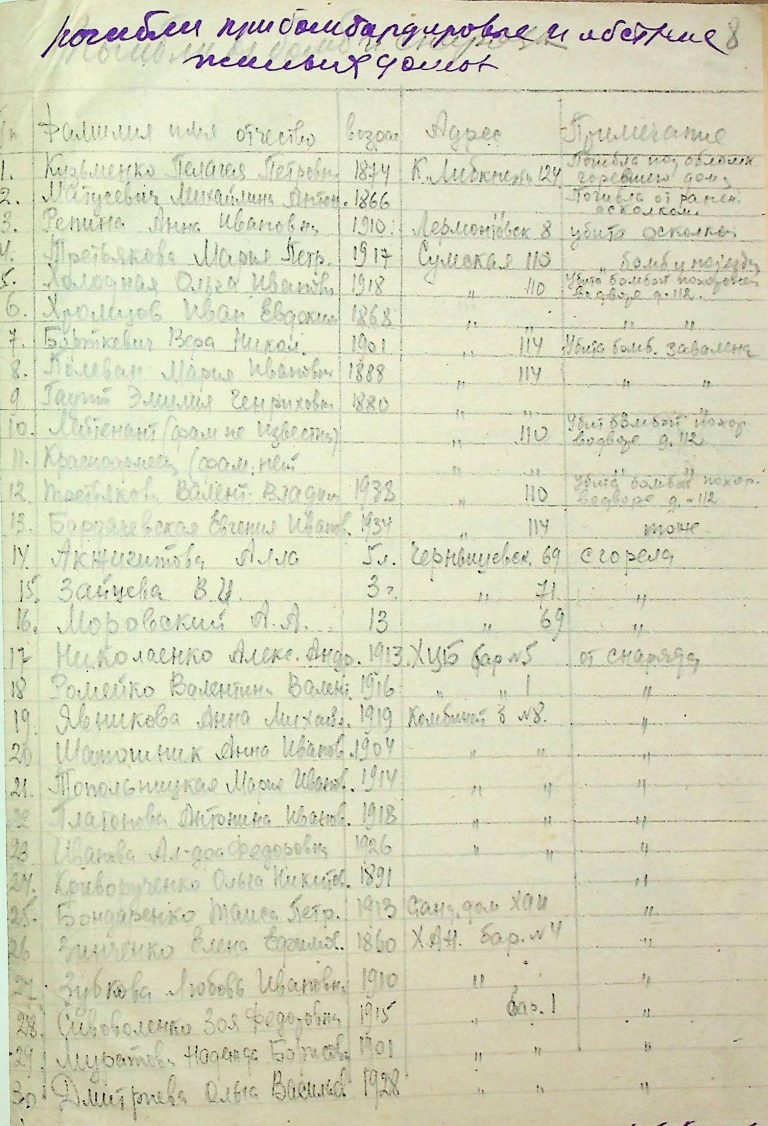 погибли при бомбардировке и обстреле 8
жилых домов
Фамилия имя отчество возра Адрес Примечание
1. Кузьменко Пелагея Петровн 1874 К. Либкнехта 124 Погибла под облом. горевшего дома
2. Матусевич Михайлина Антон. 1866 Погибла от ранен. осколком
3. Репина Анна Ивановна 1910 Лермонтовск 8 убита осколком
4. Третьякова Мария Петр. 1917 Сумская 110 " бомб у подъезда
5. Холодная Ольга Иванов 1918 " 110 Убита бомбой похоронен во дворе д. 112.
6. Храмцов Иван Евдоким 1868 " " " "
7. Борткевич Вера Никол. 1901 " 114 Убита бомб. завалена
8. Полеван Мария Ивановн 1888 " 114 " "
9. Гаупт Эмилия Генриховн 1880 " " " "
10. Лейтенант (фам не известна) " 110 Убит бомбой похор. во дворе д. 112
11. Красноармеец (фам. нет " " " "
12. Третьяков Валент. Владим 1938 " 110 Убита бомбой похор. во дворе д. 112
13. Бардачевская Евгения Иванов. 1934 " 114 тоже
14. Акжигитова Алла 5 л. Чернышевск. 69 сгорела
15. Зайцева В. И. 3 г. " 71 "
16. Моровский А. А. 13 " 69 "
17 Николаенко Алекс. Андр. 1913. ХЦБ бар №5 от снаряда
18 Ромейко Валентина Вален. 1916 " " 1 "
19. Явникова Анна Михайл. 1919 Комбинат б №8. "
20 Шапошник Анна Иванов. 1904 " " "
21. Топольницкая Мария Иванов. 1914 " " "
22 Платонова Антонина Иванов. 1918 " " "
23. Иванова Ал-дра Федоровна 1926 " " "
24. Криворученко Ольга Никитов. 1891 "
25. Бондаренко Таиса Петр. 1913 Санд. дом ХАИ "
26 Зинченко Елена Ефимов. 1860 ХАИ. бар. №4 "
27 Зубкова Любовь Ивановна 1910 " "
28. Сивоволенко Зоя Федоровна 1915 " бар. 1 "
29 Муратова Надежда Борисовн 1901 " " "
30 Дмитриева Ольга Васильев 1928 " " "